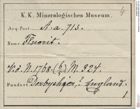 K. K. Mineralogisches Museum.
Acq. Post A. a. 713.
Name Fluorit.
Fundort Derbyshire, England.